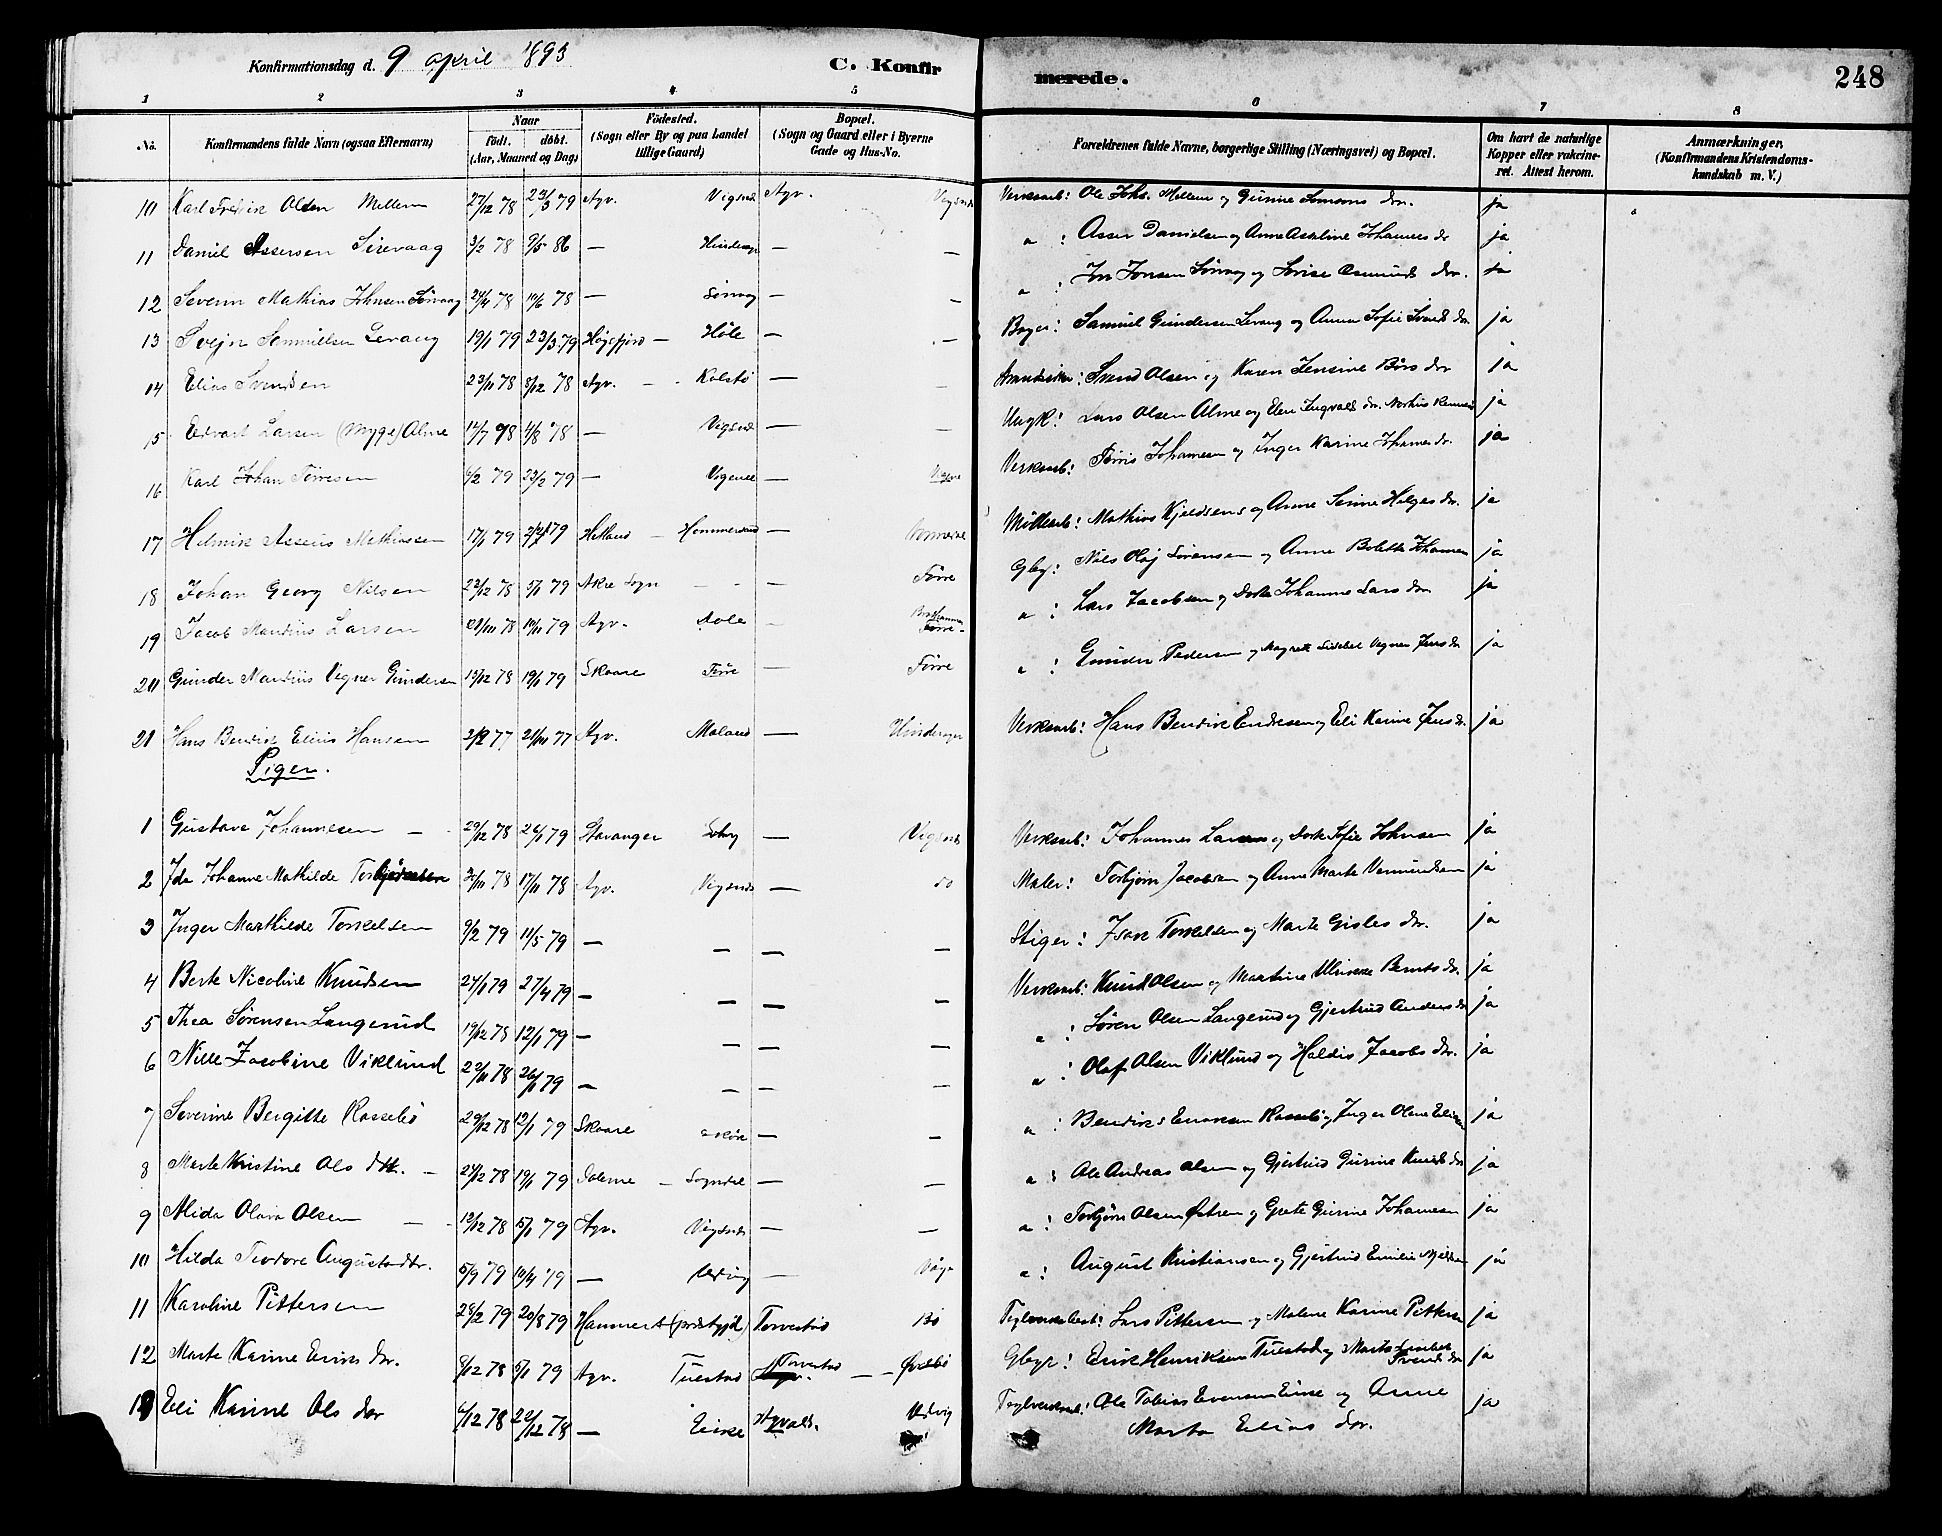 Konfirmationsdag d. 9 april 1893
C. Konfirmerede.
248
1 2 3 4 5 6 7 8
No. Konfirmandens fulde Navn (ogsaa Efternavn) Naar født. døbt. (Aar, Maaned og Dag) Fødested. (Sogn eller By og paa Landet tillige Gaard) Bopæl. (Sogn og Gaard eller i Byerne Gade og Hus-No. Forældrenes fulde Navne, borgerlige Stilling (Næringsvei) og Bopæl. Om havt de naturlige Kopper eller vakcineret. Attest herom. Anmærkninger. (Konfirmandens Kristendomskundskab m. V.)
10 Karl Fredrik Olsen Mellem 27/12 78 23/3 79 Agv. Vigsnes Agv. Vigsnes Verksarb: Ole Johs. Mellem og Gurine Simons dtr. ja
11 Daniel Assersen Sirevaag 3/2 78 9/5 86 — — — " : Asser Danielsen og Anne Johannes dr ja
12 Severin Mathias Johnsen Sørvaag 24/4 78 10/6 78 — Sørvag — — " : Jon Jonsen Sørvag og dtr. ja
13 Svejn Samuelsen Levang 19/1 79 23/3 79 Høgsfjord — Høle — — Samuel Gundersen Levang og Anna Sofie Svends dr ja
14 Elias Svendsen 23/11 78 8/12 78 Agv. — Kolstø — — Svend Olsen og Karen Jensine Børs dtr ja
15 Edvart Larsen (Myge) Alme 14/7 78 4/8 78 — Vigsnes — — Lars Olsen Alme og Elen Ingvalds dr. ja
16 Karl Johan Tørresen 6/2 79 23/2 79 — Vigsnes — Verksarb: Tørris Johannesen og Inger Karine Johannes dr. ja
17 Helmik Asseus Mathiassen 17/1 79 79 Hetland — Hommersand — Mathias Kjeldsen og Anne Serine Helges dr. ja
18 Johan Georg Nilsen 23/12 78 5/1 79 Akre Sogn — — — Førre Gbg: Nils Olaj Sørensen og Anne Bolette Johannesen ja
19 Jacob Mandius Larsen 78 79 Agv. — Førre " : Lars Jacobsen og Dorte Johanne Lars dtr ja
20 Gunder Nardius Vegner Gundersen 15/12 78 19/1 79 Skaare Førre — Førre " : Gunder Pedersen og Magrete Jens dr ja
21 Hans Bendik Elius Hansen 77 77 Agv. Moland — Hinderager Verksarb: Hans Bendik Endresen og Eli Karine Jens dr. ja
Piger.
1 Gustava Johannesen — 29/12 78 26/1 79 Stavanger — Vigsnes Verksarb: Johannes Larsen og Dorte Sofie Johnsen ja
2 Ida Johanne Mathilde Torbjørnsen 78 17/11 78 Agv. Vigsnes — do Maler: Torbjørn Jacobsen og Anne Marte Vermundsen ja
3 Inger Marthilde Torkelsen 9/2 79 11/5 79 — — — — Stiger: Isak Torkelsen og Marte Gisles dtr. ja
4 Berte Nicoline Knudsen 24/1 79 27/4 79 — — — — Verksarb: Knud Olsen og Martine Ulrikke Bernts dr. ja
5 Thea Sørensen Langerud 19/12 78 12/1 79 — — — — " : Søren Olsen Langerud og Gjertrud Anders dr ja
6 Nille Jacobine Viklund 22/11 78 26/1 79 — — — — " : Olaf Olsen Viklund og Haldis Jacobs dtr. ja
7 Severine Bergitte Rossebø 29/12 78 12/1 79 Skaare — — " : Bendik Enoksen Rossebø og Inger Oline ja
8 Marte Kristine Ols dtr. — 24/12 78 19/1 79 Dalerne — Sogndal — — " : Ole Andreas Olsen og Gjertrud Gurine Knuds dr ja
9 Alida Olava Olsen — 12/12 78 5/1 79 Agv. Vigsnes — — " : Torbjørn Olsen Østren og Grete Gurine Johannesen ja
10 Hilda Teodore Augustsdtr. 79 79 — — " : August Kristiansen og Gjertrud Emilie ja
11 Karoline Pittersen 28/2 79 20/8 79 Torvestad Bø Lars Pittersen og Malene Karine Pittersen ja
12 Marte Karine Eriks dtr. 8/12 78 5/1 79 Agv. Tuestad Torvestad — Øvrebø Gbgr: Erik Henriksen Tuestad og Marte Svends dr ja
13 Eli Karine Ols dtr 6/12 78 22/12 78 — Eike Agvalds. Vedvig Ole Tobias Evensen Eike og Anne Marta Elias dtr. ja